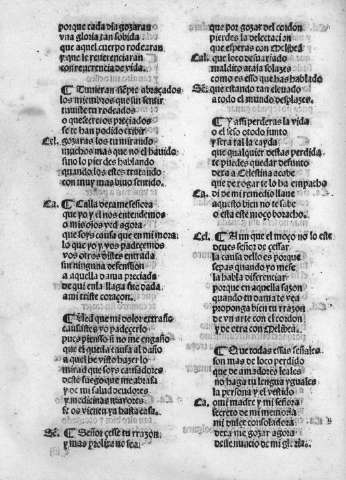 porque cada dia gozaran
vna gloria tan sobida
que aquel cuerpo rodearan
y que le reuerenciaran
con reuerencia de vida.
¶ Tuuieran siēpre abraçados
los miembros que sin sentir
tuuiste tu rodeados
o que secretos preciados
se te han podido
Cel. gozaras los tu mirando
muchos mas que no el hauido
sino lo pierdes hablando
quando los estes tratando
con muy mas biuo sentido.
Ca. ¶ Calla verame señora
que yo y el nos entendemos
o mis ojos ved agora
que soys causa que en mi mora
lo que yo y vos padecemos
vos otros distes entrada
sin ninguna defension
a aquella dama preciada
de quien la llaga fue dada
a mi triste coraçon.
¶ Ued que mi dolor estraño
causastes yo padecerlo
pues pienso si no me engaño
que el que da causa al daño
a quel he visto hazer lo
mirad que soys causadores
deste fuego que me abrasa
y de mi salud deudores
y medicinas mayores
se os vienen ya hasta casa.
Sē. ¶ Señor cesse tu rrazon
y mas prolixa no sea
que por gozar del cordon
pierdes la delectacion
que esperas con Melibea
Cal. que loco desuariado
maldito ataja solazes
como es esso que has hablado
Sē: que estando tan eleuado
a todo el mundo desplazes.
¶ Y assi perderas la vida
o el seso o todo junto
y sera tal la cayda
que qualquier destas perdida
te puedes quedar defunto
dexa a Celestina acabe
que de rogar te lo ha empacho
Ca. di de mi remedio llaue
aquesto bien no te sabe
o esta este moço boracho.
Cel. ¶ Aun que el moço no lo este
deues señor de cessar
la causa dello es porque
sepas quando yo mese
la habla diferenciar
porque en aquella sazon
quando tu dama te vea
proponga bien tu rrazon
de vn arte con el cordon
y de otra con Melibea.
¶ Que todas essas señales
son mas de loco perdido
que de amadores leales
no haga tu lengua yguales
la persona y el vestido
Ca. o mi madre y mi señora
secreto de mi memoria
mi dulce consoladora
dexa me gozar agora
deste nuncio de mi gloria.